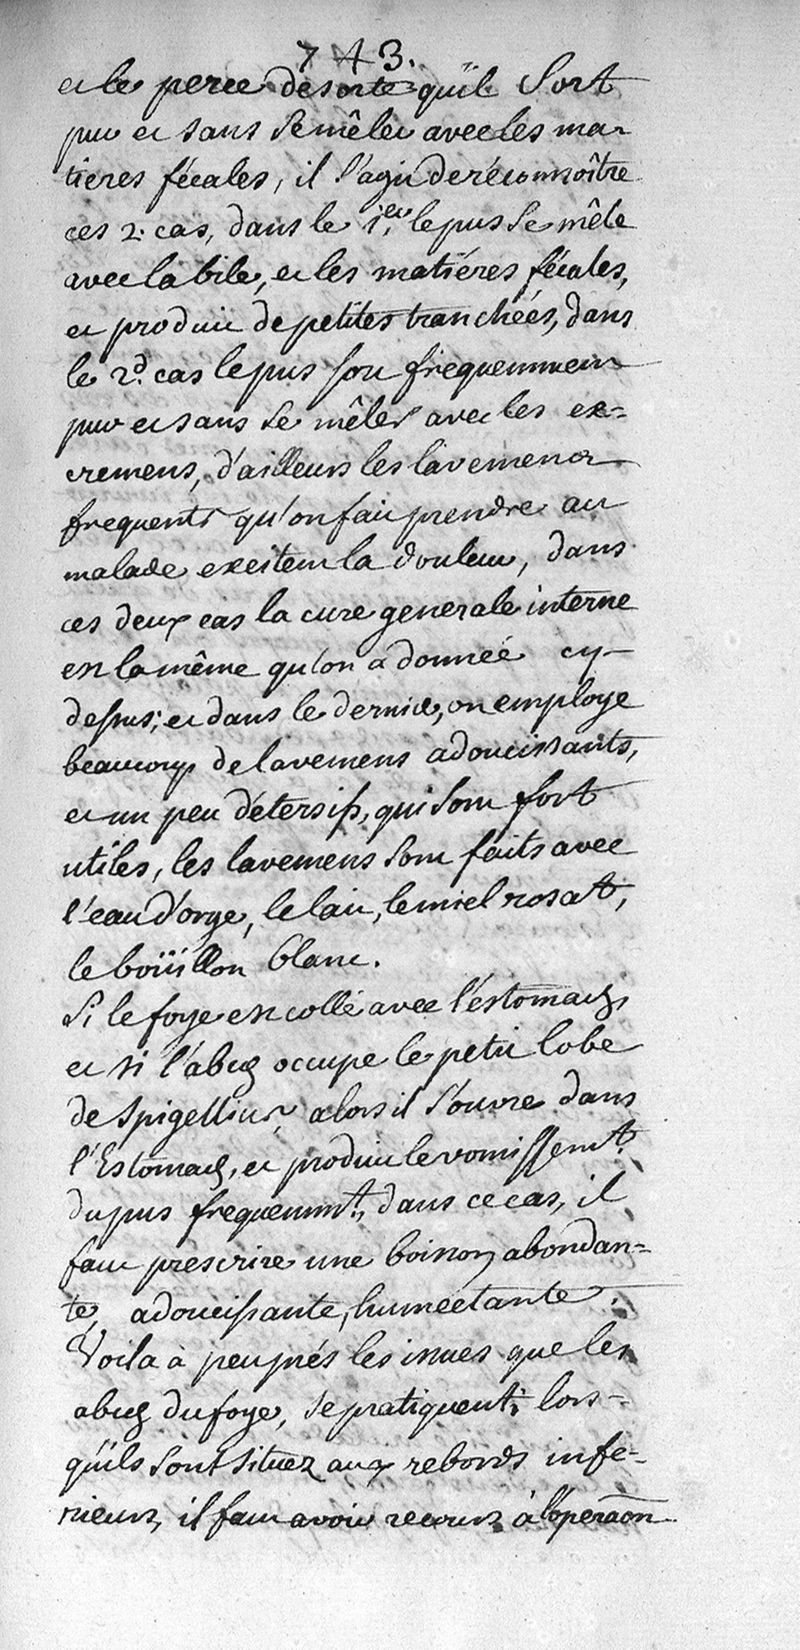 743.
et le perce desorte qu'il sort
pur et sans se mêler avec les ma-
tieres fécales, il s'agit de réconnoître
ces 2. cas, dans le 1er, le pus se mêle
avec la bile, et les matiéres fécales,
et produit de petites tranchées, dans
le 2d. cas le pus sort frequemment
pur et sans se mêler avec les ex=
cremens, d'ailleurs les lavemens
frequents qu'on fait prendre au
malade excitent la douleur, dans
ces deux cas la cure generale interne
est la même qu'on a donneé cy-
dessus; et dans le dernier, on employe
beaucoup de lavemens adoucissants,
et un peu détersifs, qui sont fort
utiles, les lavemens sont faits avec
l'eau d'orge, le lait, le miel rosat,
le boüillon blanc.
Si le foye est collé avec l'éstomach
et si l'abcez occupe le petit lobe
de Spigellius, alors il s'ouvre dans
l'Estomach, et produit le vomissemt.
du pus frequemmt., dans ce cas, il
faut prescrire une boisson abondan=
te, adoucissante, humectante.
Voila à peuprés les issues que les
abcez du foye, se pratiquent, lors=
qu'ils sont situez aux rebords infe=
rieurs, il faut avoir recours à l'operaõn